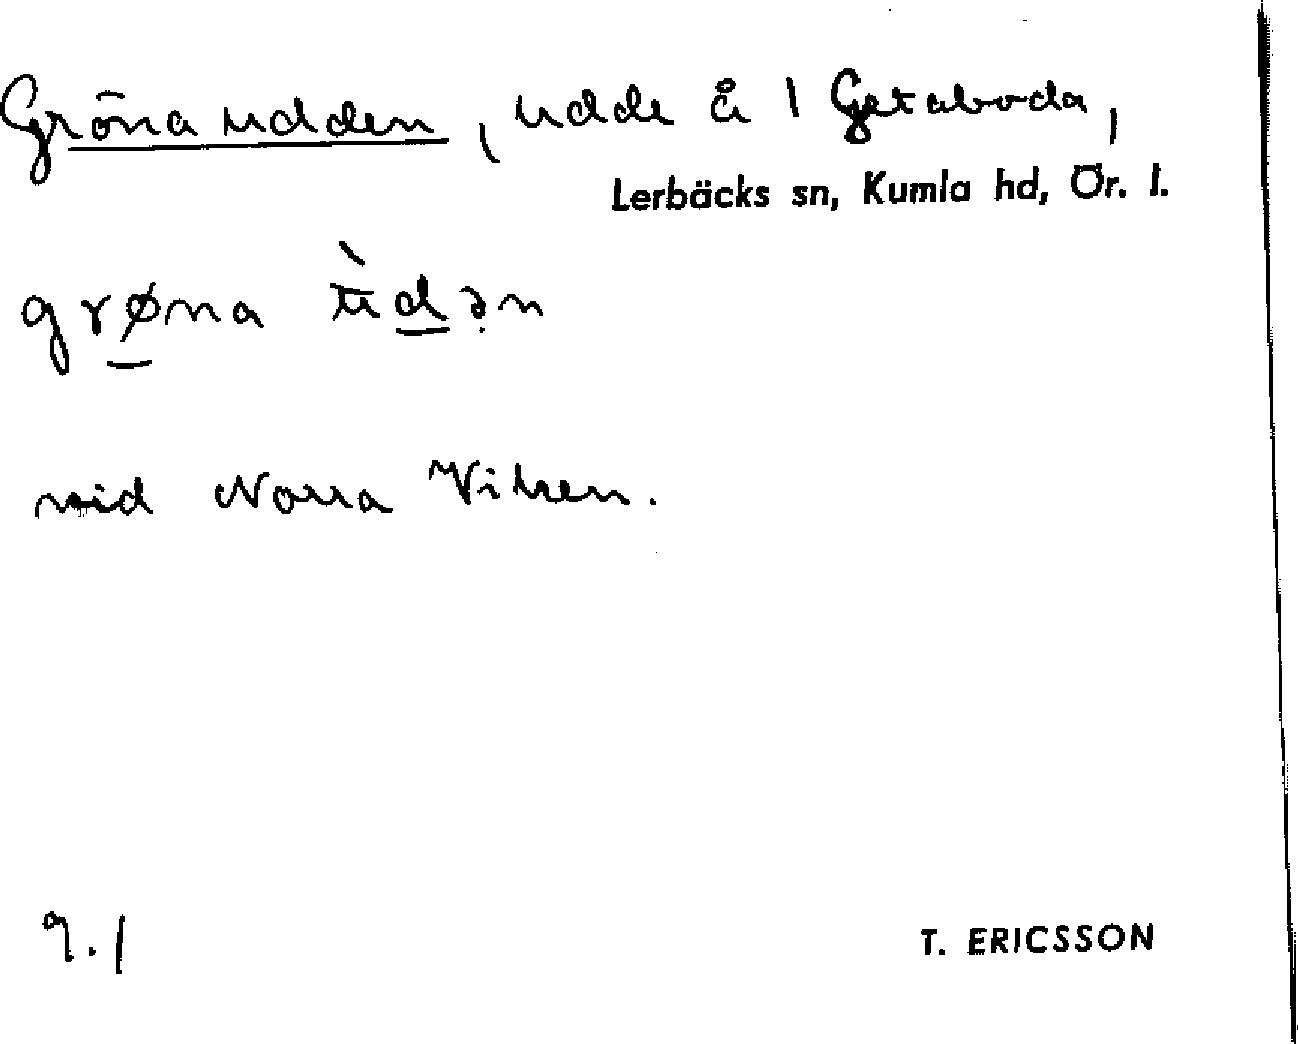 Gröna udden, udde å 1 Getaboda,
Lerbäcks sn, Kumla hd, Ör. l.
grøna ùdən
vid Norra Viken.
9.1
T. ERICSSON